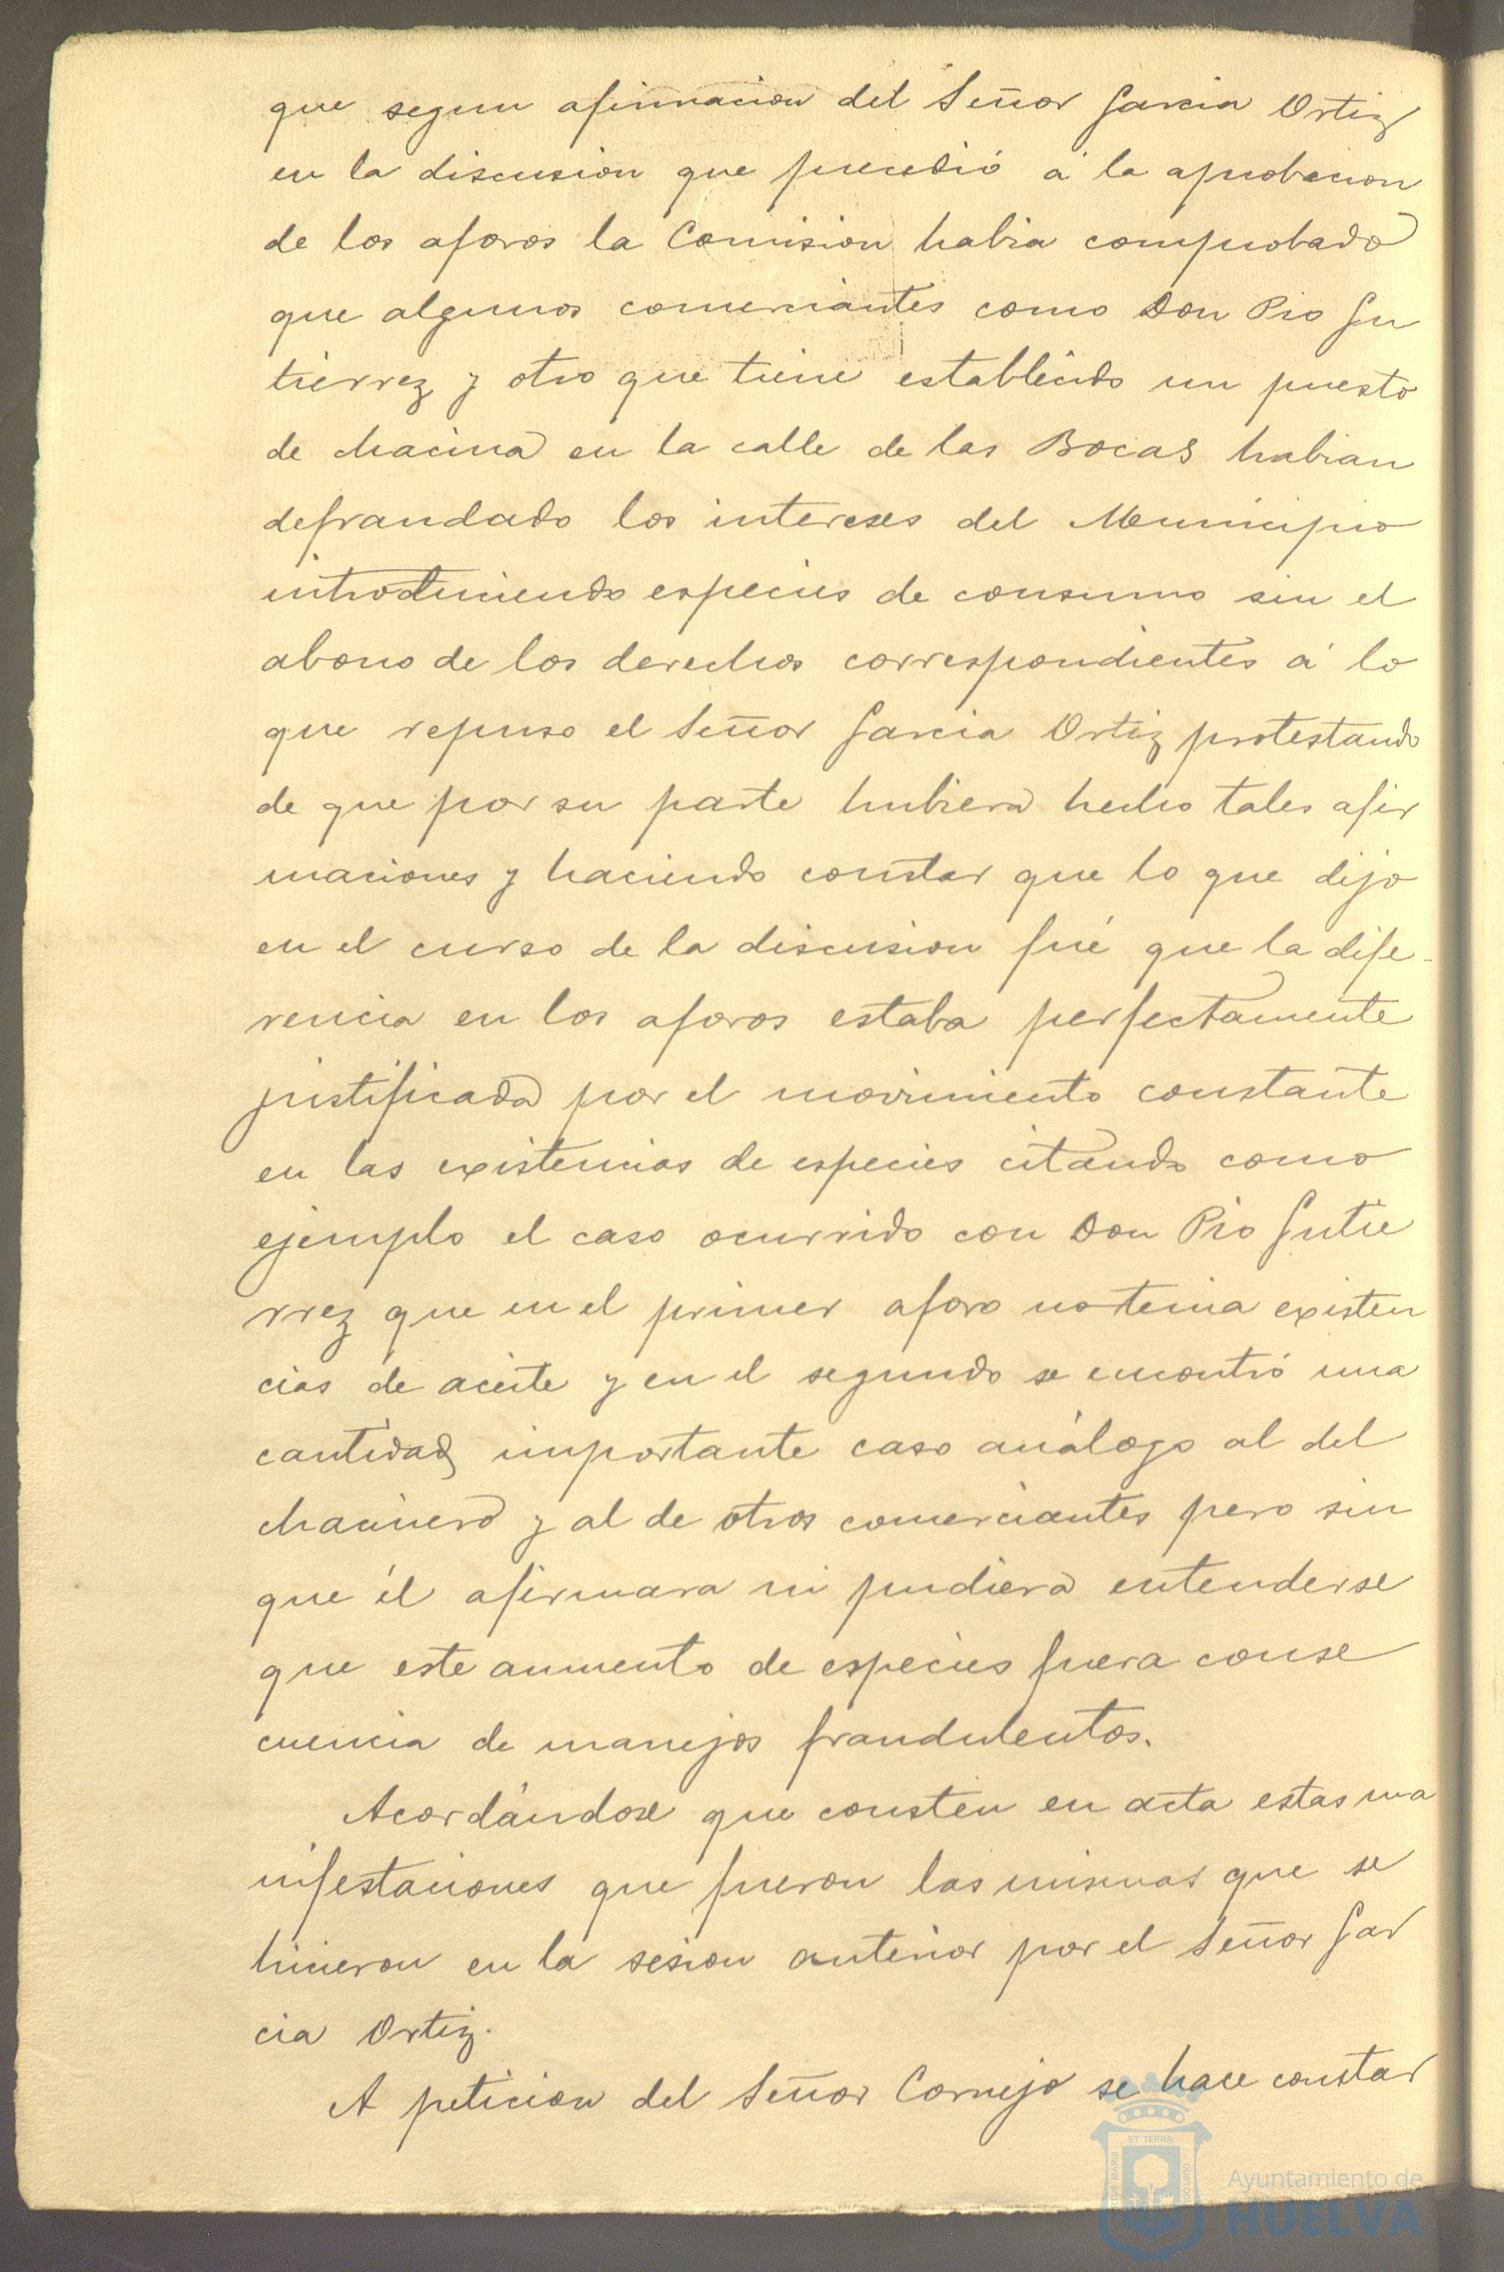 que segun afirmacion del Señor Garcia Ortiz
en la discusion que precedió á la aprobacion
de los aforos la Comision habia comprobado
que algunos comerciantes como Don Pio Gu
tierrez y otro que tiene establecido un puesto
de chacina en la calle de las Bocas habian
defraudado los intereses del Municipio
introduciendo especies de consumo sin el
abono de los derechos correspondientes á lo
que repuso el Señor Garcia Ortiz protestando
de que por su parte hubiera hecho tales afir
maciones y haciendo constar que lo que dijo
en el curso de la discusion fué que la dife-
rencia en los aforos estaba perfectamente
justificada por el movimiento constante
en las existencias de especies citando como
ejemplo el caso ocurrido con Don Pio Gutie
rrez que en el primer aforo no tenia existen
cias de aceite y en el segundo se encontró una
cantidad importante caso análogo al del
chacinero y al de otros comerciantes pero sin
que él afirmara ni pudiera entenderse
que este aumento de especies fuera conse
cuencia de manejos fraudulentos.
Acordándose que consten en acta estas ma
nifestaciones que fueron las mismas que se
hicieron en la sesion anterior por el Señor Gar
cia Ortiz.
A peticion del Señor Cornejo se hace constar
ET TERRÆ
Ayuntamiento de
HUELVA